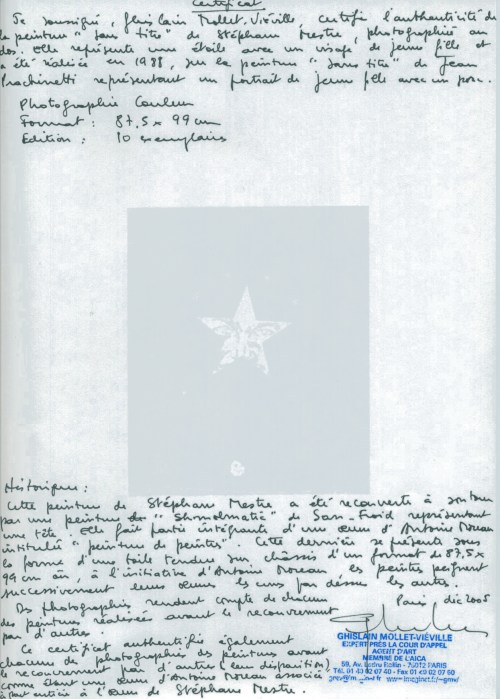 Certificat
Je soussigné, Ghislain Mollet-Viéville, certifie l'authenticité de
la peinture "sans titre" de Stéphane Mestre, photographiée au
dos. Elle représente une étoile avec un visage de jeune fille et
a été réalisée en 1988, sur la peinture "sans titre" de Jean
représentant un portrait de jeune fille avec un porc.
Photographie Couleur
Format : 87,5 x 99 cm
Edition : 10 exemplaires
Historique :
Cette peinture de Stéphane Mestre a été recouverte à son tour
par une peinture de "Shmolmatic" de Sang-froid représentant
une tête. Elle fait partie intégrante d'un œuvre d'Antoine Moreau
intitulée "peinture de peintres". Cette dernière se présente sous
la forme d'une toile tendue sur châssis d'un format de 87,5 x
99 cm où, à l'initiative d'Antoine Moreau les peintres peignent
successivement leurs œuvres les unes par dessus les autres.
Des photographies rendent compte de chacune
des peintures réalisées avant le recouvrement
par d'autres
Paris déc 2005
Ce certificat authentifie également
chacune des photographies des peintures avant
le recouvrement par d'autres (leur disparition)
comme étant une œuvre d'Antoine Moreau associée
à part entière à l'œuvre de Stéphane Mestre.
GHISLAIN MOLLET-VIÉVILLE
EXPERT PRÈS LA COUR D'APPEL
AGENT D'ART
MEMBRE DE L'AICA
59, Av. Ledru Rollin - 75012 PARIS
Tél. 01 43 02 07 40 - Fax 01 40 02 07